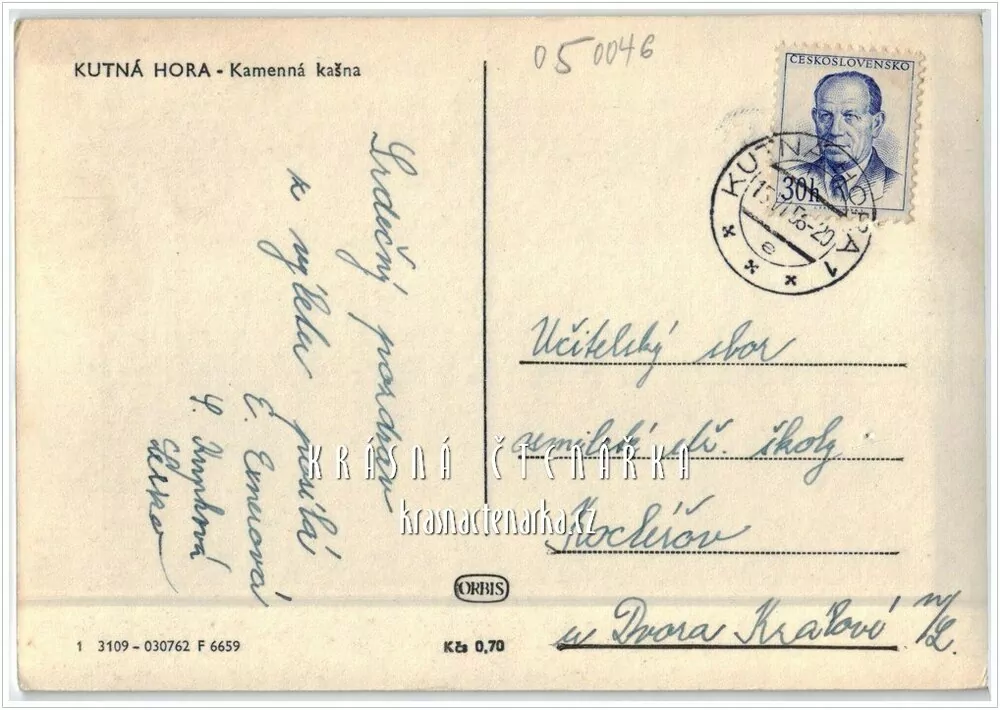 KUTNÁ HORA - Kamenná kašna
05 0046
ČESKOSLOVENSKO
30h
KUTNÁ HORA 1
15.VI.56-20
e
Srdečný pozdrav
z výletu posílá
E. Erneová
Učitelský sbor
školy
Kocléřov
u Dvora Králové n/L.
KRÁSNÁ ČTENÁŘKA
krasnactenarka.cz
ORBIS
1 3109 - 030762 F 6659
Kčs 0,70